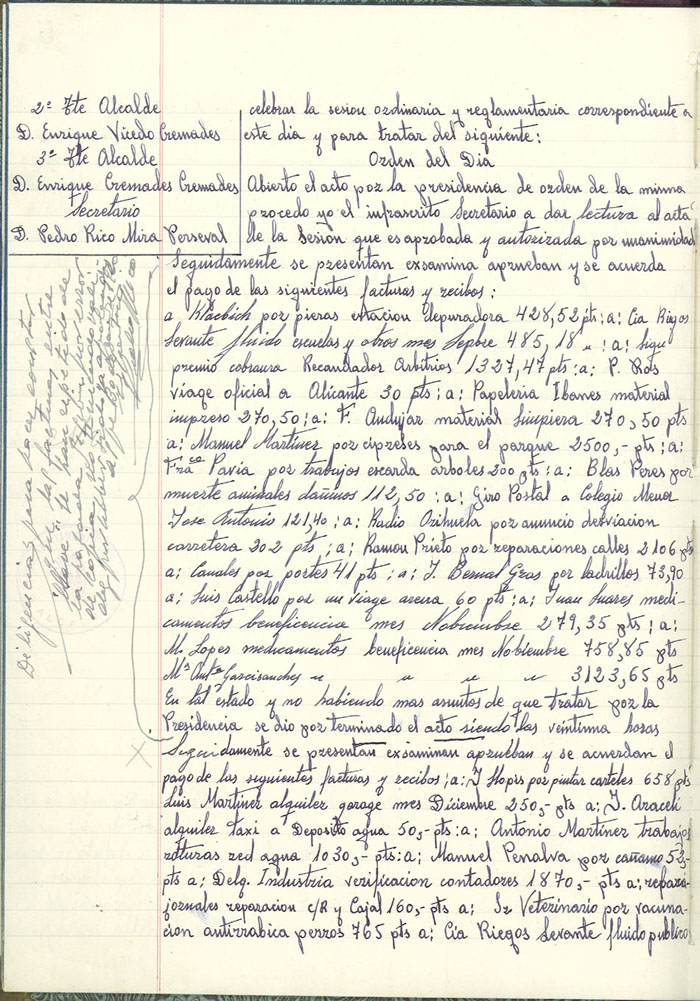 2º Tte Alcalde
D. Enrique Vicedo Cremades
3º Tte Alcalde
D. Enrique Cremades Cremades
Secretario
D. Pedro Rico Mira Perseval
celebrar la sesion ordinaria y reglamentaria correspondiente a
este dia y para tratar del siguiente:
Orden del Dia
Abierto el acto por la presidencia de orden de la misma
procedo yo el infrascrito Secretario a dar lectura al acta
de la Sesion que es aprobada y autorizada por unanimidad
Seguidamente se presentan exsamina aprueban y se acuerda
el pago de las siguientes facturas y recibos:
a por pieras estacion depuradora 428,52 pts; a; Cia Riegos
Levante fluido escuelas y otros mes Sepbre 485,18 " ; a;
premio cobranra Recaudador Arbitrios 1327,47 pts; a; P. Ros
viage oficial a Alicante 30 pts; a; Papeleria Ibanes material
impreso 270,50; a; F. Andujar material limpiera 270,50 pts
a; Manuel Martinez por cipreses para el parque 2500,- pts; a;
Frasco Pavia por trabajos escarda arboles 200 pts; a; Blas Peres por
muerte animales dañinos 112,50; a; Giro Postal a Colegio Menor
Jose Antonio 121,40; a; Radio Orihuela por anuncio desviacion
carretera 302 pts; a; Ramon Prieto por reparaciones calles 2106 pts
a; Canales por portes 41 pts; a; J. Bernal Gras por ladrillos 73,90
a; Luis Castello por un viage arena 60 pts; a; Juan Suares medi-
camentos beneficencia mes Nobiembre 279,35 pts; a;
M. Lopes medicamentos beneficencia mes Nobiembre 758,85 pts
Mª Antª Garcisanches " " " " 3123,65 pts
En tal estado y no habiendo mas asuntos de que tratar por la
Presidencia se dio por terminado el acto siendo las veintiuna horas
Seguidamente se presentan exsaminan aprueban y se acuerdan el
pago de las siguientes facturas y recibos; a; J Llopis por pintar carteles 658 pts
Luis Martinez alquiler garage mes Diciembre 250,- pts a; J. Araceli
alquiler taxi a Deposito agua 50,- pts: a; Antonio Martinez trabajos
roturas red agua 1030,- pts: a; Manuel Penalva por cañamo 53,-
pts a; Delg. Industria verificacion contadores 1870,- pts a;
jornales reparacion c/R y Cajal 160,- pts a; Sr Veterinario por vacuna-
cion antirrabica perros 765 pts a; Cia Riegos Levante fluido publico
Diligencia; para hacer constar
que las facturas entre
"llave" se han